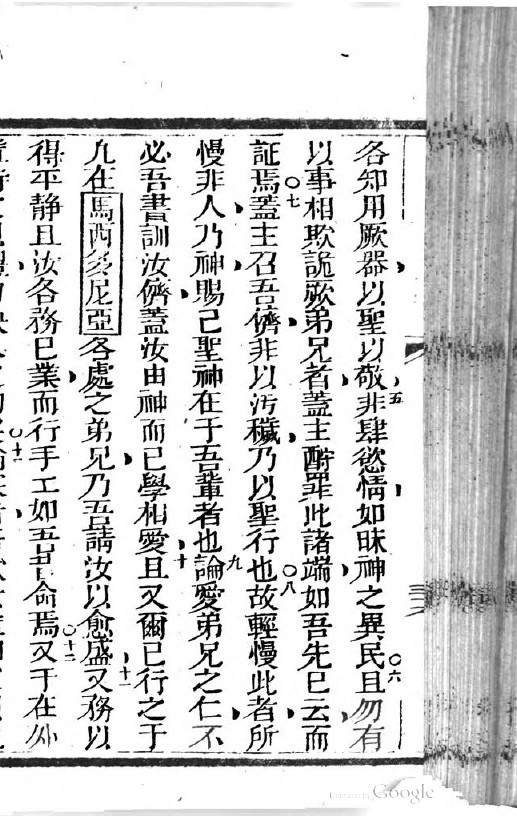 各知用厥器以聖以敬五非肆慾情如昧神之異民六且勿有
以事相欺詭厥弟兄者蓋主酧罪此諸端如吾先已云而
証焉七蓋主召吾儕非以汚穢乃以聖行也八故輕慢此者所
慢非人乃神賜己聖神在于吾輩者也九論愛弟兄之仁不
必吾書訓汝儕蓋汝由神而已學相愛十且又爾已行之于
凡在馬西多尼亞各處之弟兄乃吾請汝以愈盛十一又務以
得平靜且汝各務己業而行手工如吾昌命焉十二又于在外
Google